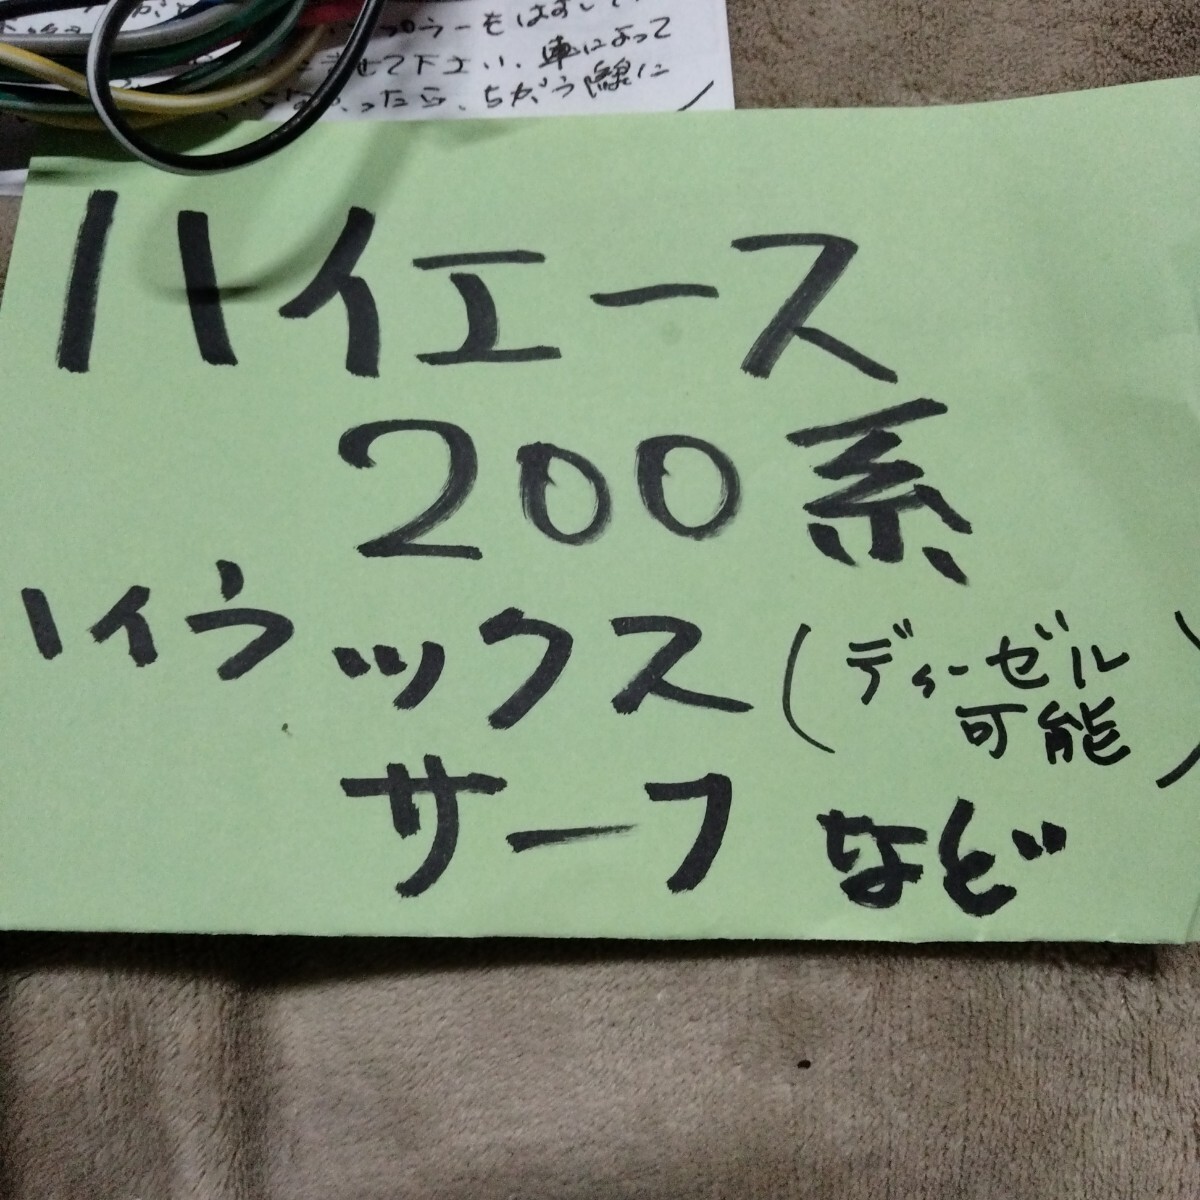 プラーもはずして
せて下さい、車によって
ったら、ちがう線に
ハイエース
200系
ハイラックス(ディーゼル
可能)
サーフ など